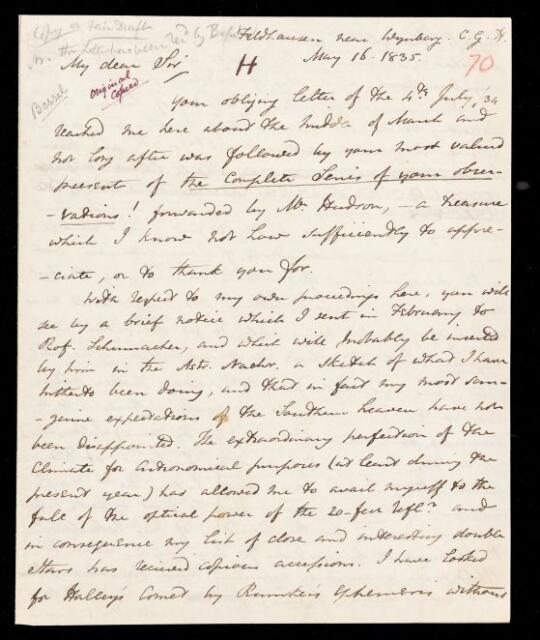 Copy or Fair Draft
Feldhausen near Wynberg. C. G. H.
May 16. 1835.
70
My dear Sir
H
Bessel
Original
Copied
Your obliging letter of the 4th July, '34
reached me here about the middle of March and
not long after was followed by your most valued
present of the Complete Series of your obser-
-vations! forwarded by Mr. Hudson, - a treasure
which I know not how sufficiently to appre-
-ciate, or to thank you for.
With respect to my own proceedings here, you will
see by a brief notice which I sent in February to
Prof. Schumacher, and which will probably be inserted
by him in the Astr. Nachr. a sketch of what I have
hitherto been doing, and that in fact my most san-
-guine expectations of the Southern heavens have not
been disappointed. The extraordinary perfection of the
climate for astronomical purposes (at least during the
present year) has allowed me to avail myself to the
full of the optical power of the 20-feet reflr. and
in consequence my list of close and interesting double
stars has received copious accessions. I have looked
for Halley's Comet by Rumker's Ephemeris without